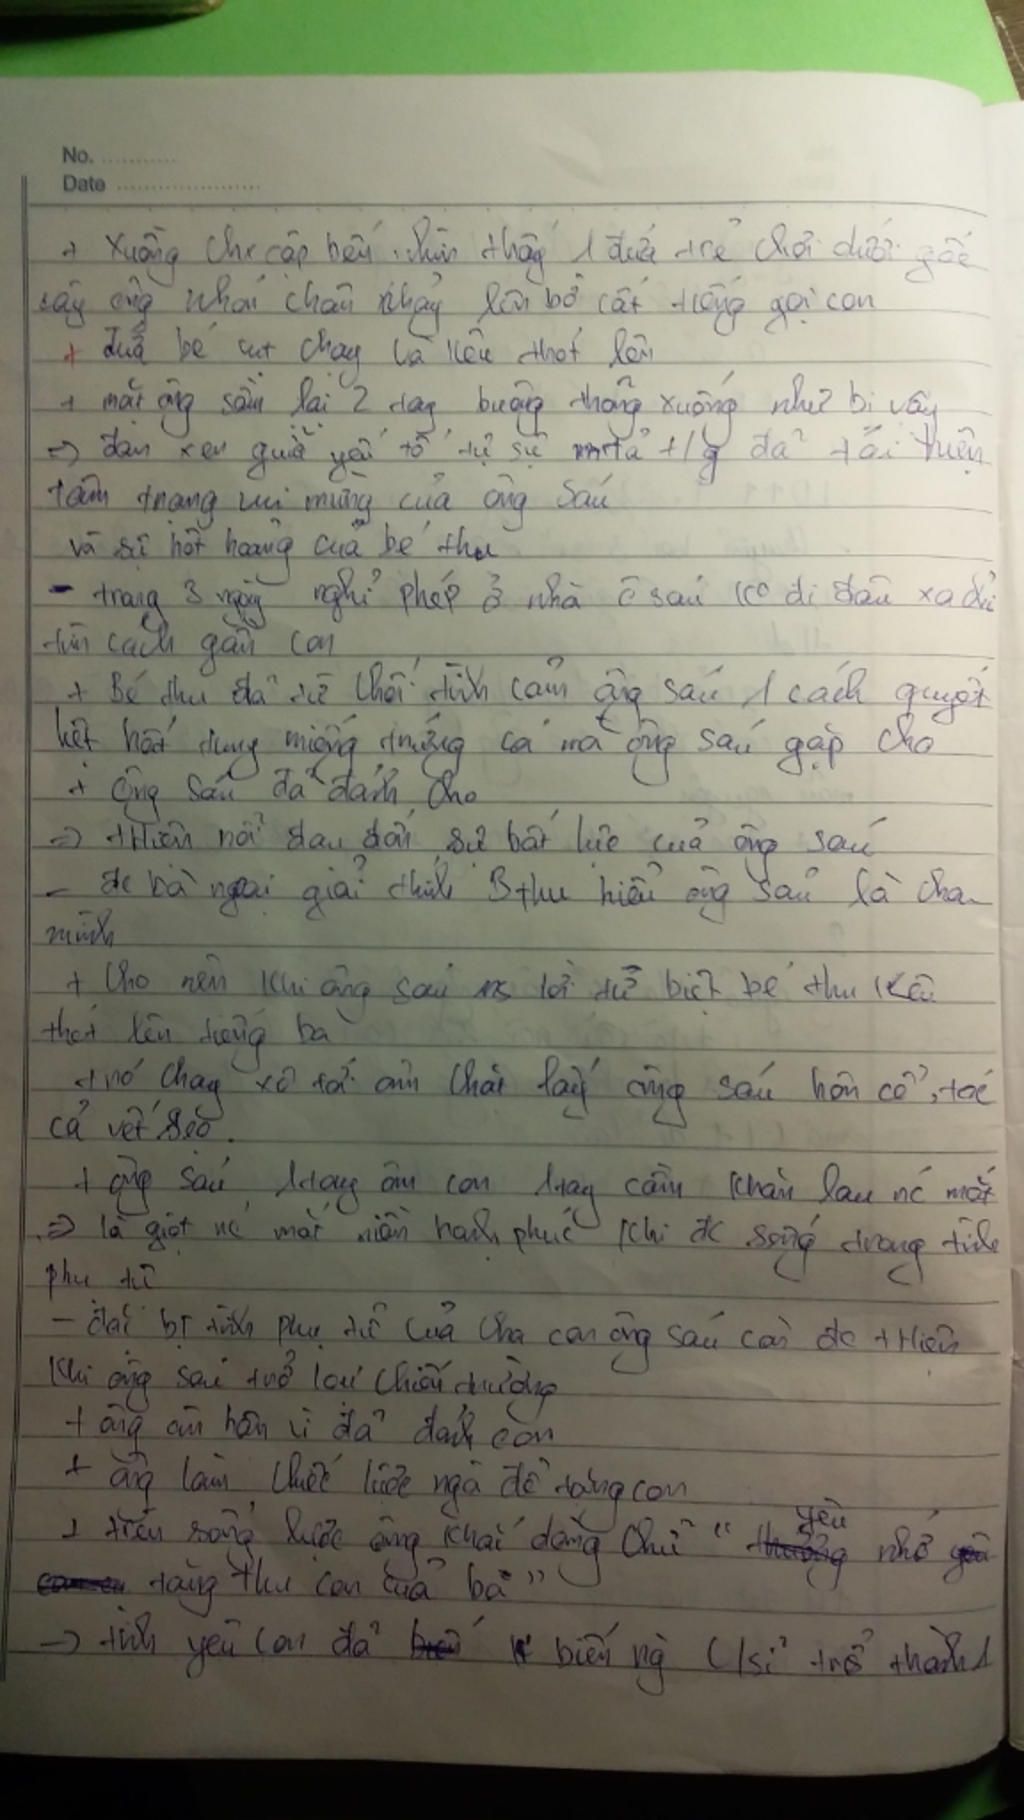 No. ............
Date ........................
+ Xuồng chx cập bến. nhìn thấy 1 đứa trẻ chơi dưới gốc
cây ông nhón chân nhảy lên bờ cất tiếng gọi con
+ đứa bé vụt chạy và kêu thét lên
+ mặt ông sầm lại 2 tay buông thõng xuống như bị vây
=> đan xen giữa yếu tố tự sự mtả t/g đã tái hiện
tâm trạng vui mừng của ông Sáu
và sự hốt hoảng của bé thu
- trong 3 ngày nghỉ phép ở nhà ô sáu ko đi đâu xa chỉ
tìm cách gần con
+ Bé thu đã từ chối tình cảm ông sáu 1 cách quyết
liệt hất tung miếng trứng cá mà ông Sáu gắp cho
+ Ông Sáu đã đánh cho
=> tHiện nỗi đau đớn sự bất lực của ông sáu
- đc bà ngoại giải thích Bthu hiểu ông Sáu là cha
mình
+ Cho nên khi ông sáu ns lời từ biệt bé thu kêu
thét lên tiếng ba
+ nó chạy xô tới ôm chặt lấy ông sáu hôn cổ, tóc
cả vết sẹo.
+ ông sáu 1tay ôm con 1tay cầm khăn lau nc mắt
=> là giọt nc mắt niềm hạnh phúc khi đc sống trong tình
phụ tử
- đặc bị tình phụ tử của cha con ông sáu còn đc tHiện
khi ông sáu trở lại chiến trường
+ ông ân hận vì đã đánh con
+ ông làm chiếc lược ngà để tặng con
+ trên sống lược ông khắc dòng chữ " yêu nhớ
tặng thu con của ba"
-> tình yêu con đã biến ng c/sĩ trở thành 1